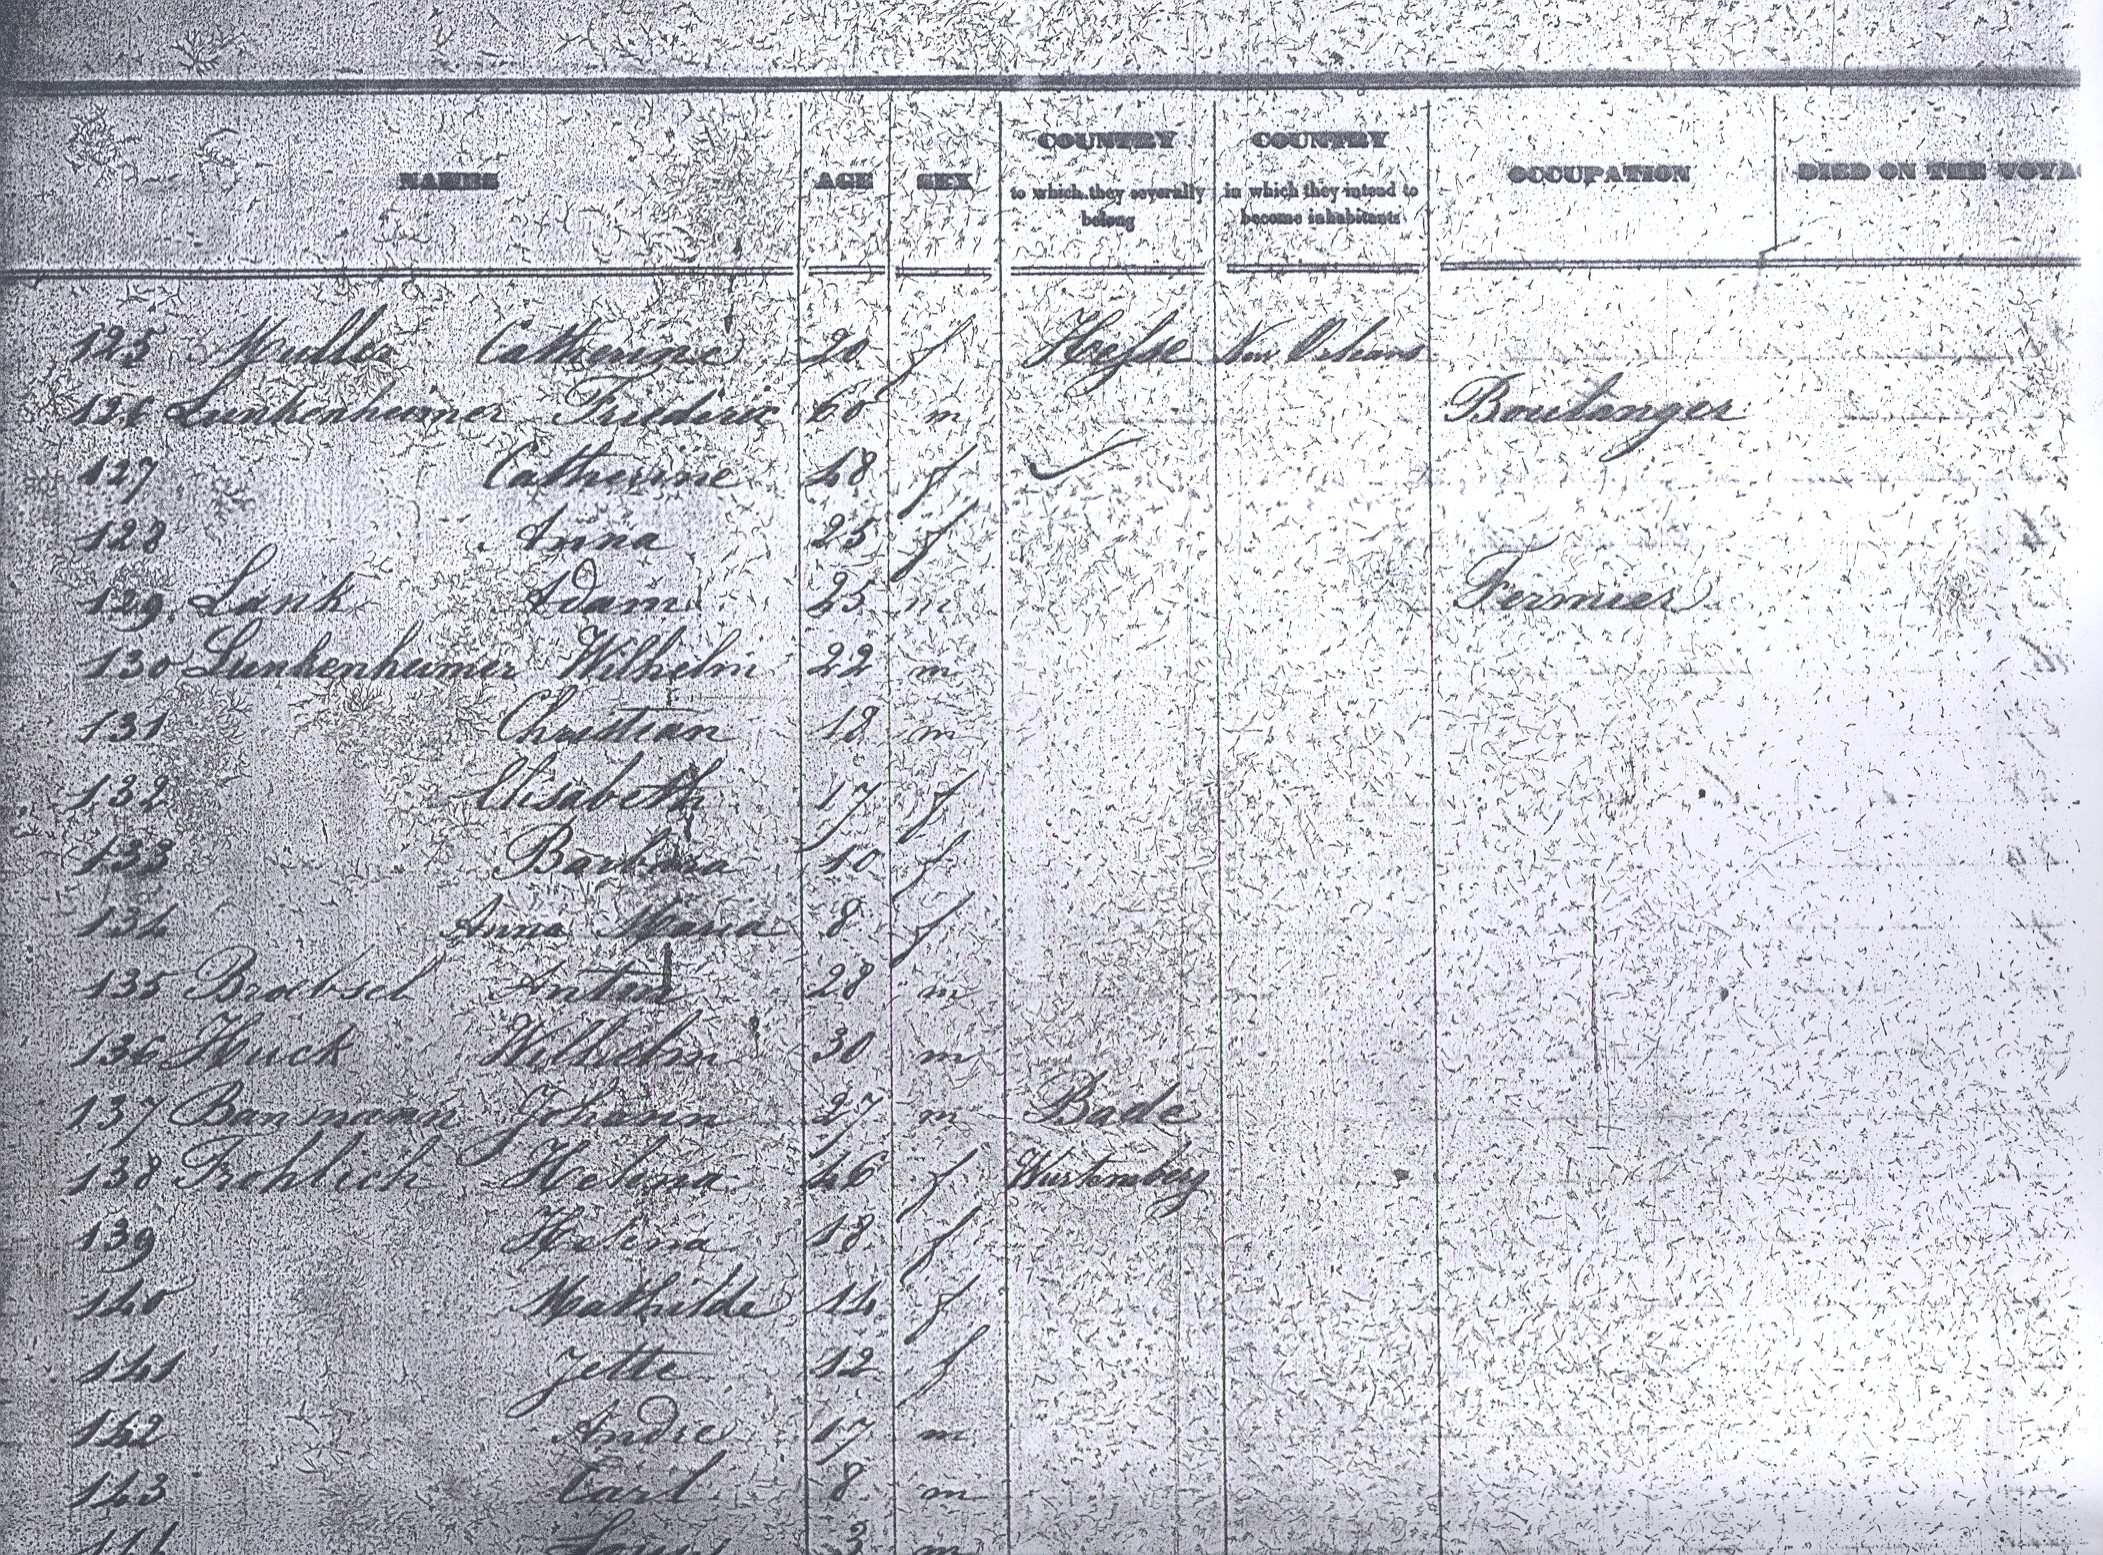 NAMES AGE SEX COUNTRY to which they severally belong COUNTRY in which they intend to become inhabitants OCCUPATION DIED ON THE VOYA
125 Muller Catherine 20 f Hesse New Orleans
126 Lunkenheimer Frederic 60 m Boulanger
127 Catherine 48 f
128 Anna 25 f
129 Lank Adam 25 m Fermier
130 Lunkenheimer Wilhelm 22 m
131 Christian 18 m
132 Elisabeth 17 f
133 Barbara 10 f
134 Anna Maria 8 f
135 Anton 28 m
136 Huck Wilhelm 30 m
137 Baumann Johann 27 m Bade
138 Frohlich Helena 46 f Wurtemberg
139 Helena 18 f
140 Mathilde 14 f
141 Jette 12 f
142 Andre 17 m
143 Carl 8 m
144 Louis 3 m